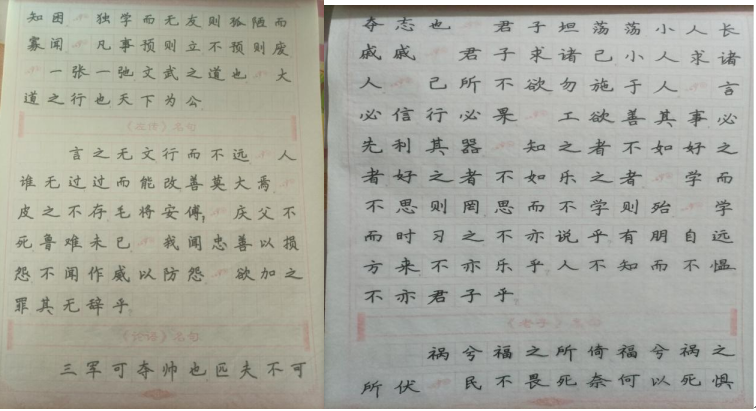 知困 独学而无友则孤陋而
寡闻 凡事预则立不预则废
一张一弛文武之道也 大
道之行也天下为公
言之无文行而不远 人
谁无过过而能改善莫大焉
皮之不存毛将安傅 庆父不
死鲁难未已 我闻忠善以损
怨不闻作威以防怨 欲加之
罪其无辞乎
三军可夺帅也匹夫不可
夺志也 君子坦荡荡小人长
戚戚 君子求诸己小人求诸
人 己所不欲勿施于人 言
必信行必果 工欲善其事必
先利其器 知之者不如好之
者好之者不如乐之者 学而
不思则罔思而不学则殆 学
而时习之不亦说乎有朋自远
方来不亦乐乎人不知而不愠
不亦君子乎
祸兮福之所倚福兮祸之
所伏 民不畏死奈何以死惧